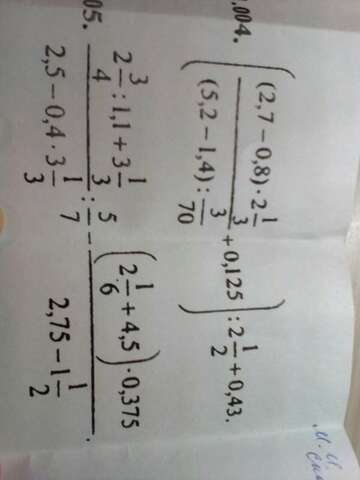 ,004. \left(\frac{(2,7-0,8)\cdot 2\frac{1}{3}}{(5,2-1,4):\frac{3}{70}}+0,125\right):2\frac{1}{2}+0,43.
05. \frac{2\frac{3}{4}:1,1+3\frac{1}{3}}{2,5-0,4\cdot 3\frac{1}{3}}:\frac{5}{7}-\frac{\left(2\frac{1}{6}+4,5\right)\cdot 0,375}{2,75-1\frac{1}{2}}.